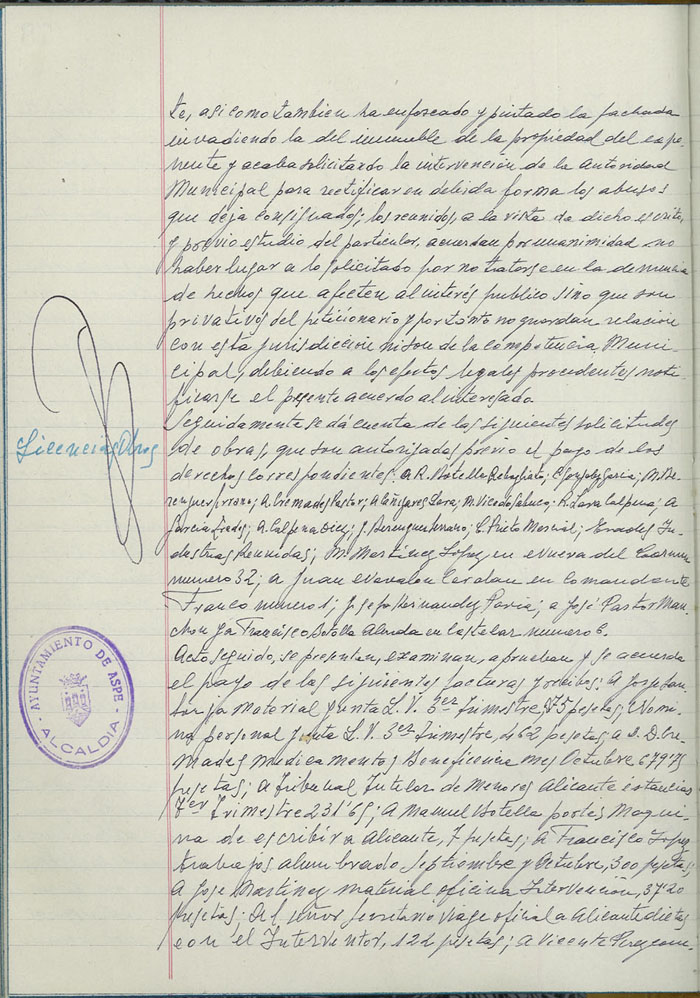 te, asi como tambien ha enfoscado y pintado la fachada
invadiendo la del inmueble de la propiedad del expo-
nente y acaba solicitando la intervención de la Autoridad
Municipal para rectificar en debida forma los abusos
que deja consignados; los reunidos, a la vista de dicho escrito,
y previo estudio del particular, acuerdan por unanimidad no
haber lugar a lo solicitado por no tratarse en la denuncia
de hechos que afecten al interés publico sino que son
privativos del peticionario y por tanto no guardan relación
con esta jurisdiccion ni son de la competencia Muni-
cipal, debiendo a los efectos legales procedentes noti-
ficarse el presente acuerdo al interesado.
Licencias Obras
Seguidamente se dá cuenta de las siguientes solicitudes
de obras, que son autorizadas previo el pago de los
derechos correspondientes: a R. Botella Rebagliato; C. Gonzalez Garcia; M. Be-
renguer Serrano; A. Cremades Pastor; A. Cañizares Lara; M. Vicedo; R. Lara Calpena; A
Garcia; A. Calpena; J. Berenguer Serrano; L. Prieto Marcial; In-
dustrias Reunidas; M. Martínez López en Nueva del Carmen
numero 32; a Juan Navarro en Comandante
Franco numero 1; Josefa Hernandez; a José Pastor Man-
chon y a Francisco Botella Almda en Castelar numero 6.
Acto seguido, se presentan, examinan, aprueban y se acuerda
el pago de las siguientes facturas y recibos: A Jose
material Junta L. V. 3er trimestre, 75 pesetas; Nomi-
na personal Junta L. V. 3er Trimestre, 462 pesetas; a D. Cre-
mades Medicamentos Beneficencia mes Octubre 679'75
pesetas; a Tribunal Tutelar de Menores Alicante estancias
3er Trimestre 231'65; A Manuel Botella portes Maqui-
na de escribir a Alicante, 7 pesetas; a Francisco Lopez
trabajos alumbrado Septiembre y Octubre, 300 pesetas
A Jose Martínez material oficina Intervención, 37'20
pesetas; Al señor Secretario viaje oficial a Alicante dietas
con el Interventor, 122 pesetas; a Vicente
AYUNTAMIENTO DE ASPE
ALCALDIA